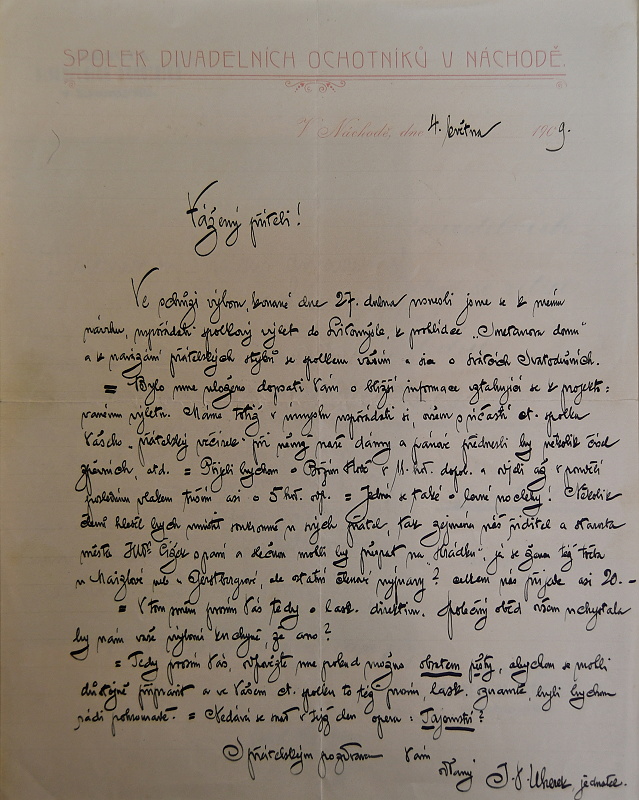 SPOLEK DIVADELNÍCH OCHOTNÍKŮ V NÁCHODĚ.
V Náchodě, dne 4. května 1909.
Vážený příteli!
Ve schůzi výboru, konané dne 27. dubna usnesli jsme se k mému
návrhu, uspořádati spolkový výlet do Litomyšle, k prohlídce „Smetanova domu"
a k navázání přátelských styků se spolkem vaším a sice o svátcích Svatodušních.
= Bylo mne uloženo dopsati Vám o bližší informace vztahující se k projekto-
vanému výletu. Máme totiž v úmyslu uspořádati si, ovšem s účastí ct. spolku
Vašeho „přátelský večírek" při němž naše dámy a pánové přednesli by několik čísel
zpěvních, atd. = Přijeli bychom o Boží v 11. hod. dopol. a odjeli až v pondělí
posledním vlakem tuším asi o 5 hod. odp. = Jedná se také o levné noclehy! Několik
členů hleděl bych umístit soukromně u svých přátel, tak zejména náš ředitel a starosta
města JUDr. Čížek s paní a slečnou mohli by přespat na „hrádku", já se ženou též třeba
u neb u , ale ostatní členové ? celkem nás přijede asi 20. –
= V tom směru prosím Vás tedy o lask. direktivu. Společný oběd všem uchystala
by nám vaše výborná kuchyně, že ano?
= Tedy prosím Vás, odpovězte mne pokud možno obratem pošty, abychom se mohli
důstojně připravit a ve Vašem ct. spolku to též prosím, lask. oznamte, byli bychom
rádi pohromadě. = Nedává se snad v týž den opera: Tajemství?
S přátelským pozdravem Vám
oddaný J. V. jednatel.